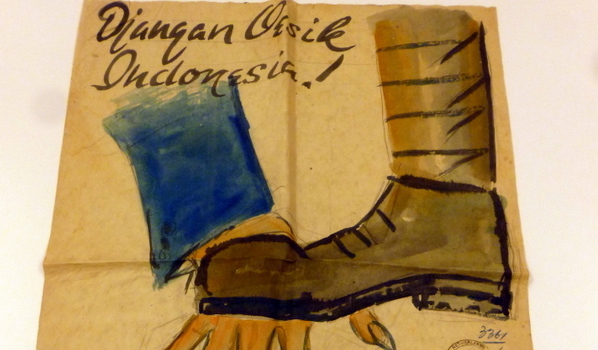 Djangan Oesik
Indonesia!
3361